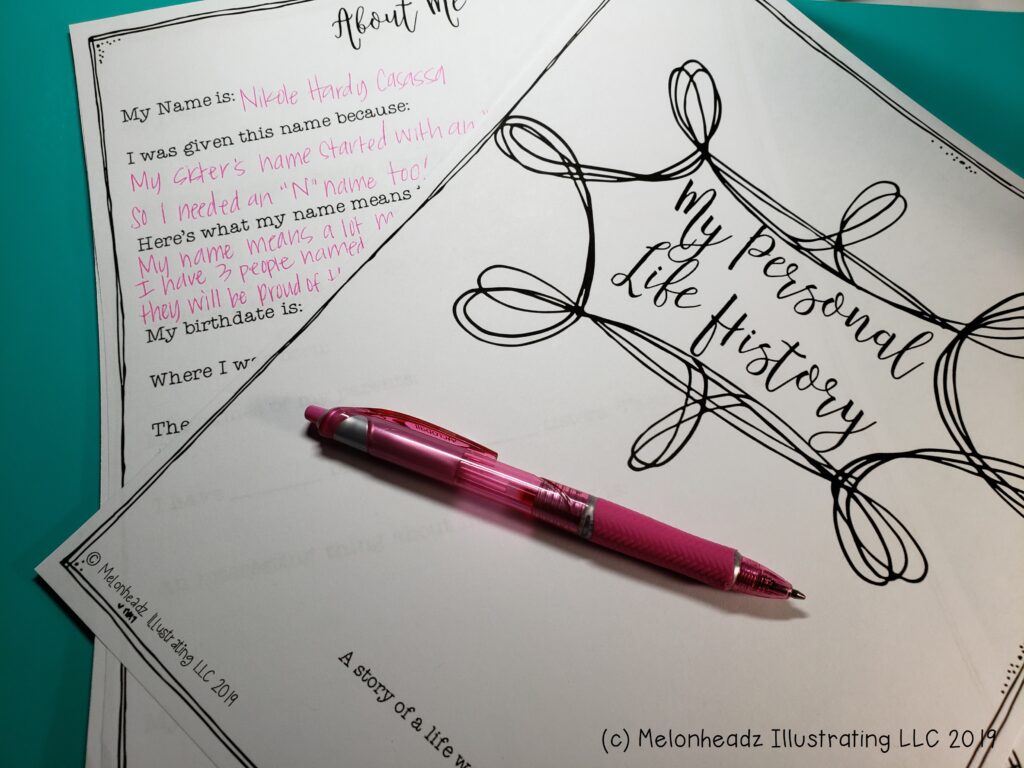 About Me
My Name is: Nikole Hardy Casassa
I was given this name because:
My sister's name started with an "
so I needed an "N" name too!
Here's what my name means
My name means a lot
I have 3 people named
they will be proud of
My birthdate is:
Where I
The
My Personal
Life History
© Melonheadz Illustrating LLC 2019
A story of a life
(c) Melonheadz Illustrating LLC 2019